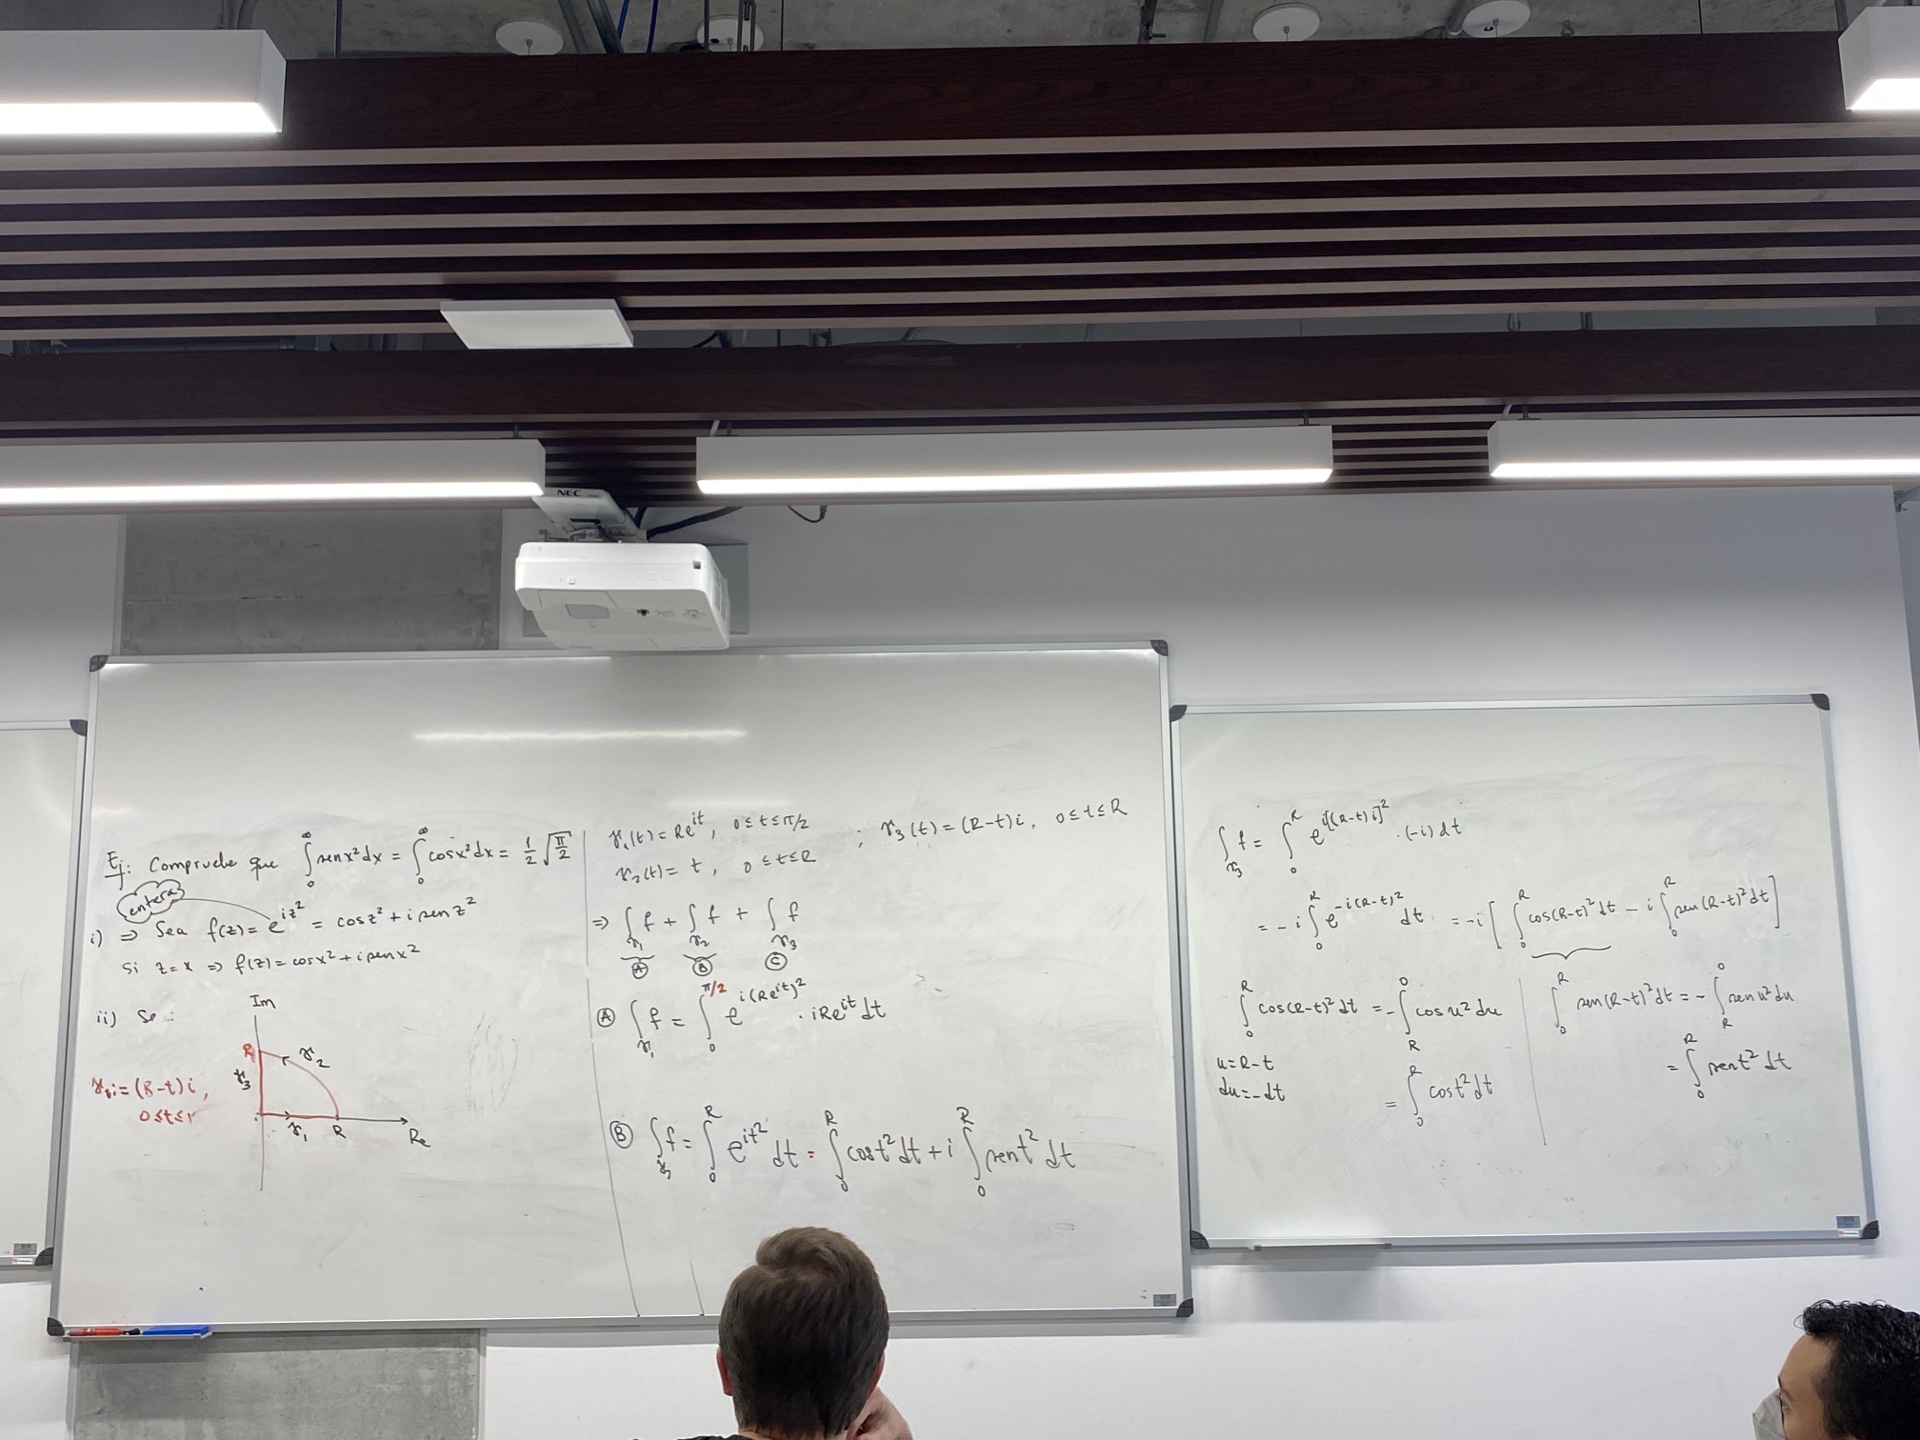 NEC
Ej: Compruebe que ∫₀^∞ sen x² dx = ∫₀^∞ cos x² dx = 1/2 √(π/2)
entera
i) ⇒ Sea f(z) = e^{iz²} = cos z² + i sen z²
Si z = x ⇒ f(z) = cos x² + i sen x²
ii) Se:
Im
R
γ₂
γ₃
γ₁
R
Re
= (R-t)i,
0≤t≤r
γ₁(t) = Re^{it}, 0≤t≤π/2 ; γ₃(t) = (R-t)i, 0≤t≤R
γ₂(t) = t, 0≤t≤R
⇒ ∫_{γ₁} f + ∫_{γ₂} f + ∫_{γ₃} f
Ⓐ Ⓑ Ⓒ
Ⓐ ∫_{γ₁} f = ∫₀^{π/2} e^{i(Re^{it})²} · iRe^{it} dt
Ⓑ ∫_{γ₂} f = ∫₀^R e^{it²} dt = ∫₀^R cos t² dt + i ∫₀^R sen t² dt
∫_{γ₃} f = ∫₀^R e^{i[(R-t)i]²} · (-i) dt
= -i ∫₀^R e^{-i(R-t)²} dt = -i [ ∫₀^R cos(R-t)² dt - i ∫₀^R sen(R-t)² dt ]
∫₀^R cos(R-t)² dt = - ∫_R^0 cos u² du
u = R-t
du = -dt
= ∫₀^R cos t² dt
∫₀^R sen(R-t)² dt = - ∫_R^0 sen u² du
= ∫₀^R sen t² dt